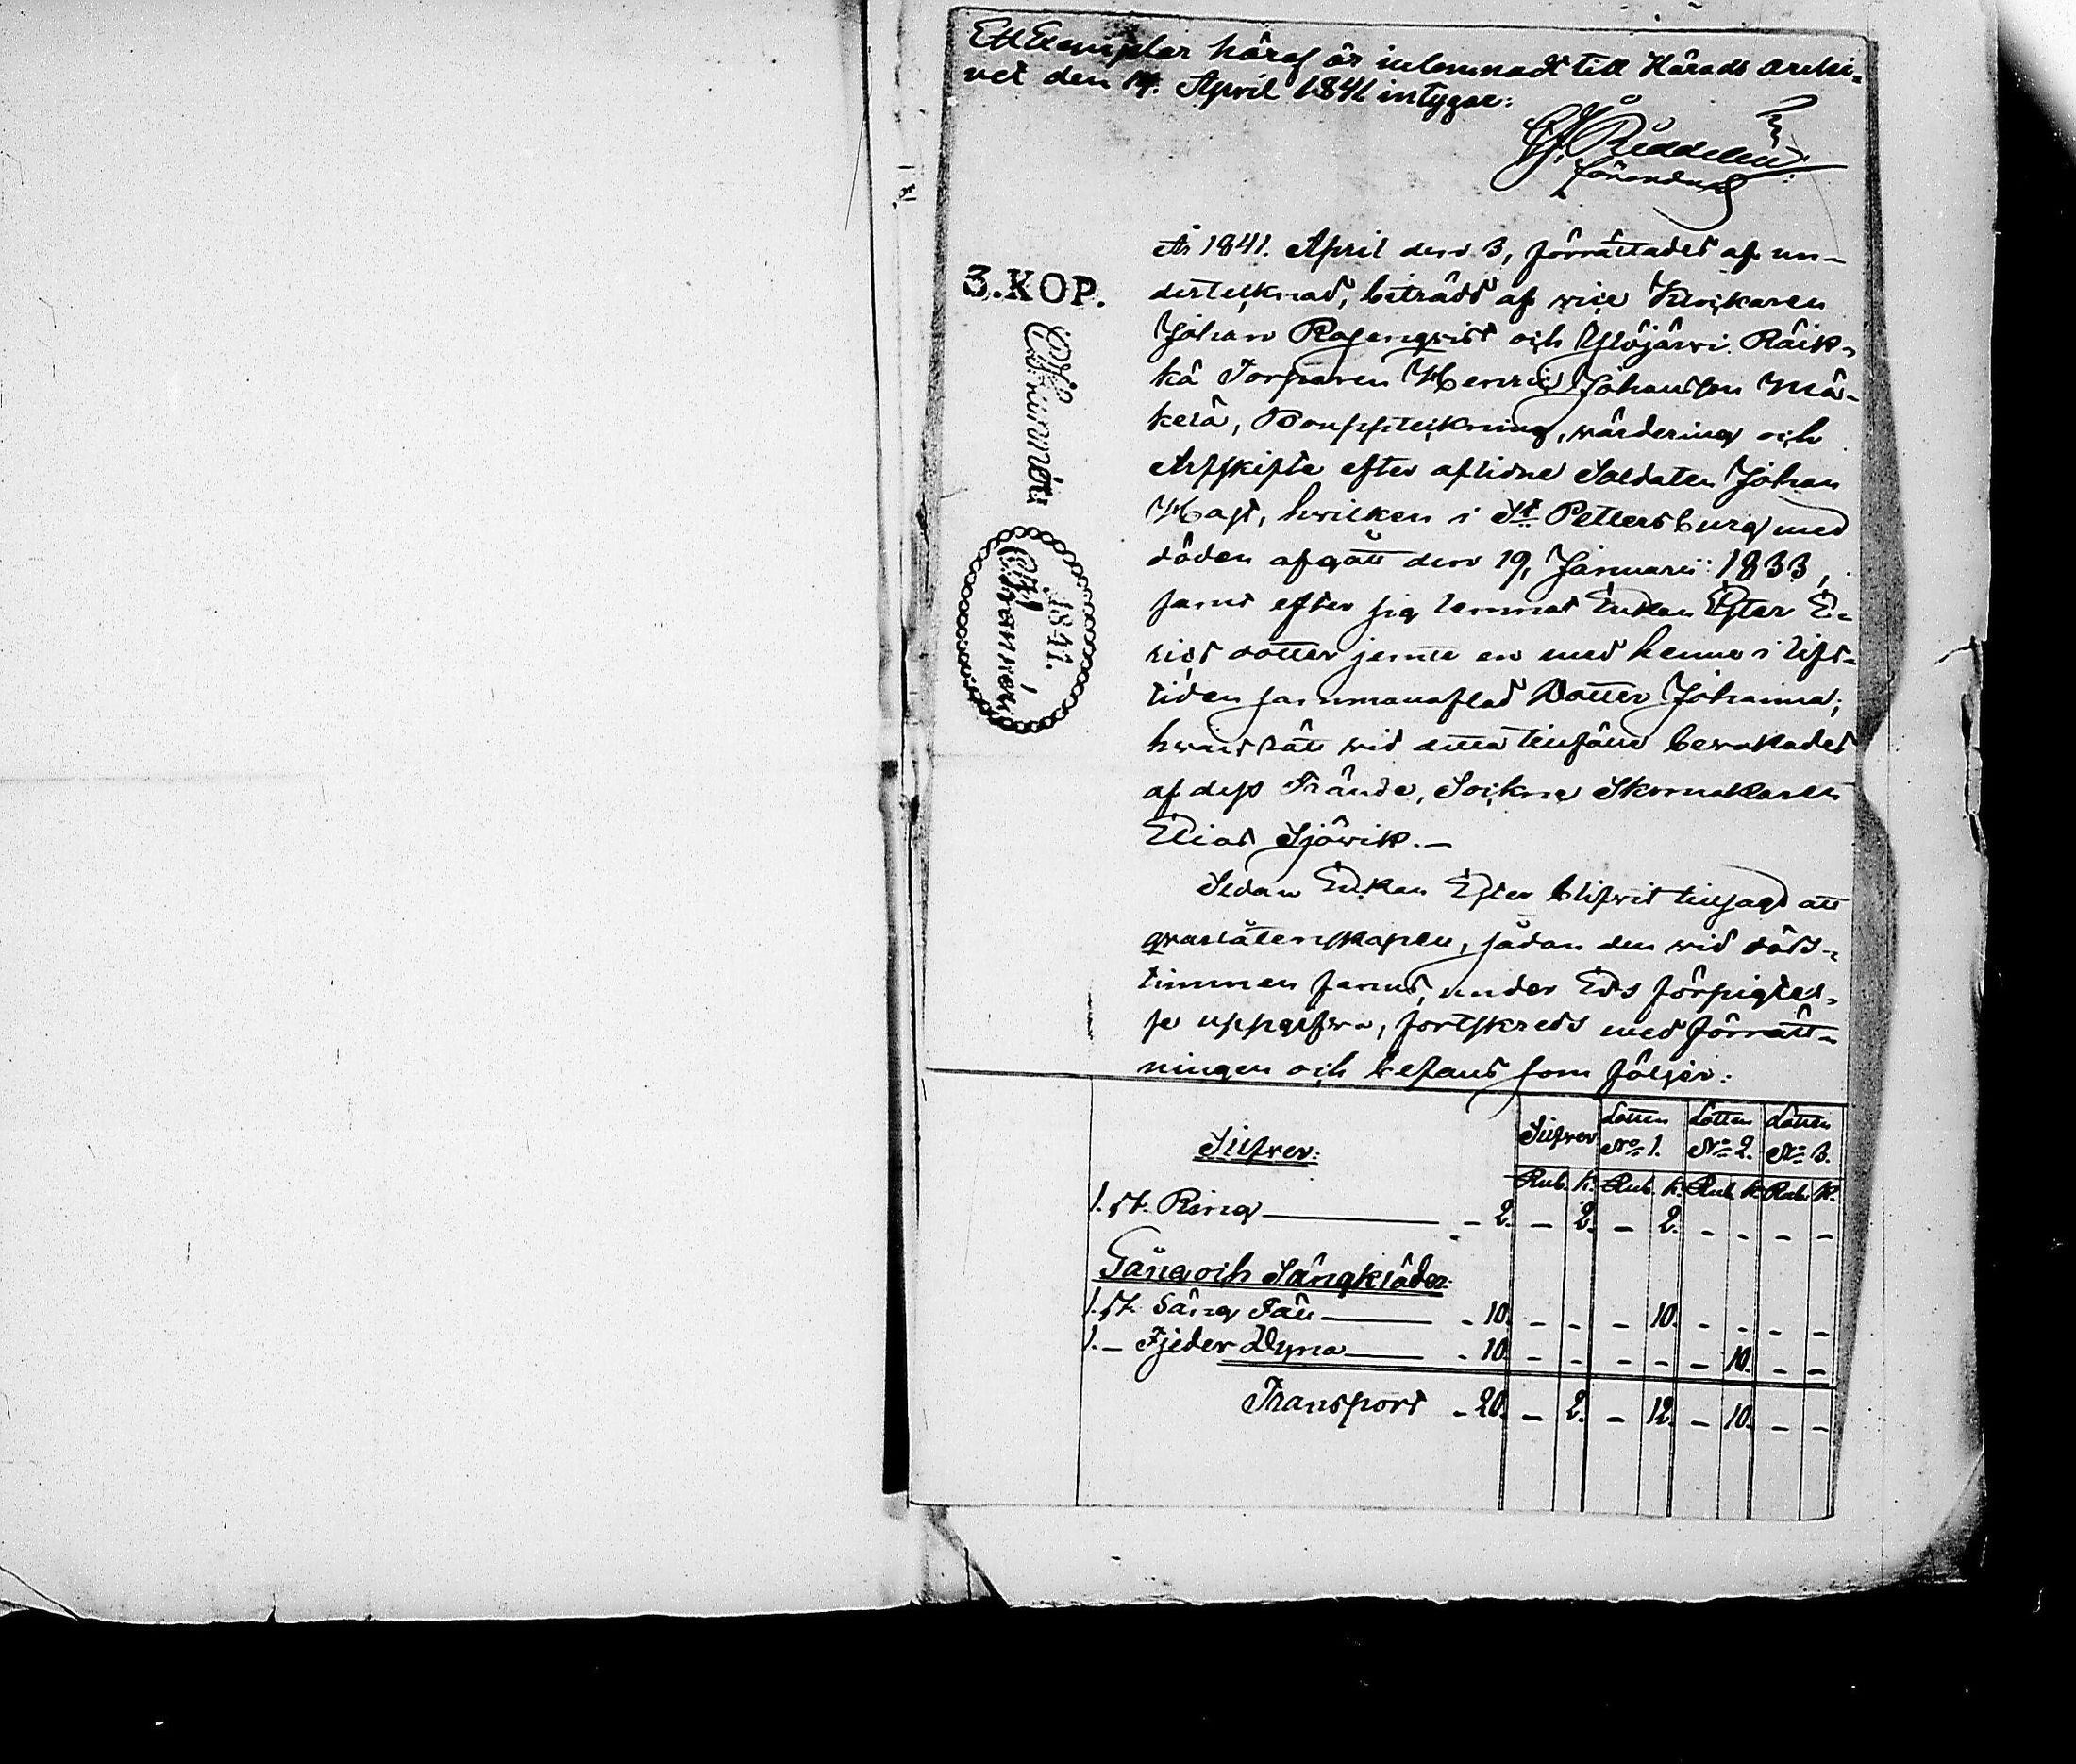 Ett Exemplar häraf är inlemnadt till Härads Archi-
vet den 14. April 1841 intygar:
Riddelin
3.KOP.
1841.
År 1841. April den 3, förrättades af un-
dertecknad, biträdd af vice Klockaren
Johan Rosenqvist och Ylöjärvi Räik-
kä Torparen Henric Johansson Mä-
kelä, Boupptekning, värdering och
Arfskifte efter aflidne Soldaten Johan
Hast, hvilken i St. Pettersburg med
döden afgått den 19, Januarii 1833,
samt efter sig lemnat Enkan Ester E-
rics dotter jemte en med henne i lifs-
tiden sammanaflad Dotter Johanna;
hvars rätt vid detta tillfälle bevakades
af dess Frände, Sockne Skomakaren
Elias Sjövik.-
Sedan Enkan Ester blifvit tillsagd att
qvarlåtenskapen, sådan den vid döds-
timmen fanns, under Eds förpigtel-
se uppgifva, fortskreds med förrätt-
ningen och befans som följer:
Silfver: Silfver Lotten No 1. Lotten No 2. Lotten No 3.
Rub. k. Rub. k. Rub. k. Rub. k.
1. st. Ring - 2. - 2. - 2. - - - -
Gång och Sängkläder:
1. st. Säng Fäll - 10. - - - 10. - - - -
1. - Fjeder Dyna - 10. - - - - - 10. - -
Transport - 20. - 2. - 12. - 10. - -